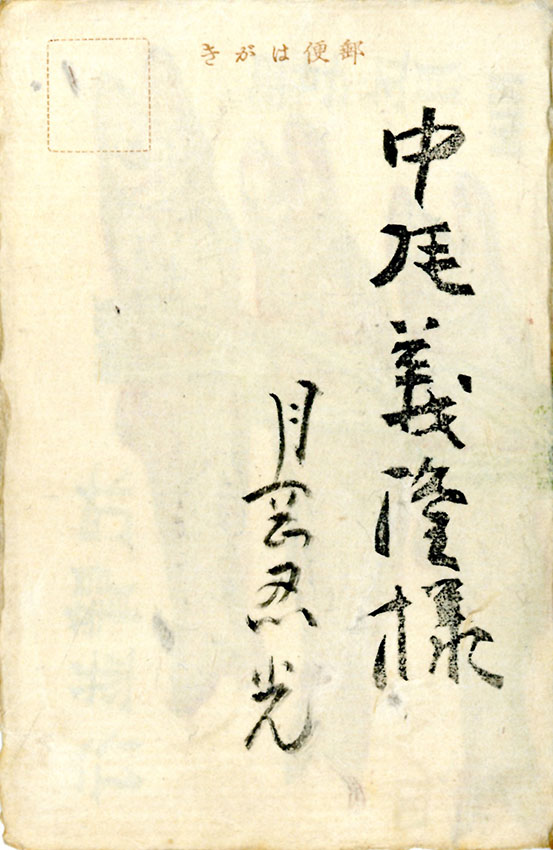 郵便はがき
中尾義隆様
月岡忍光